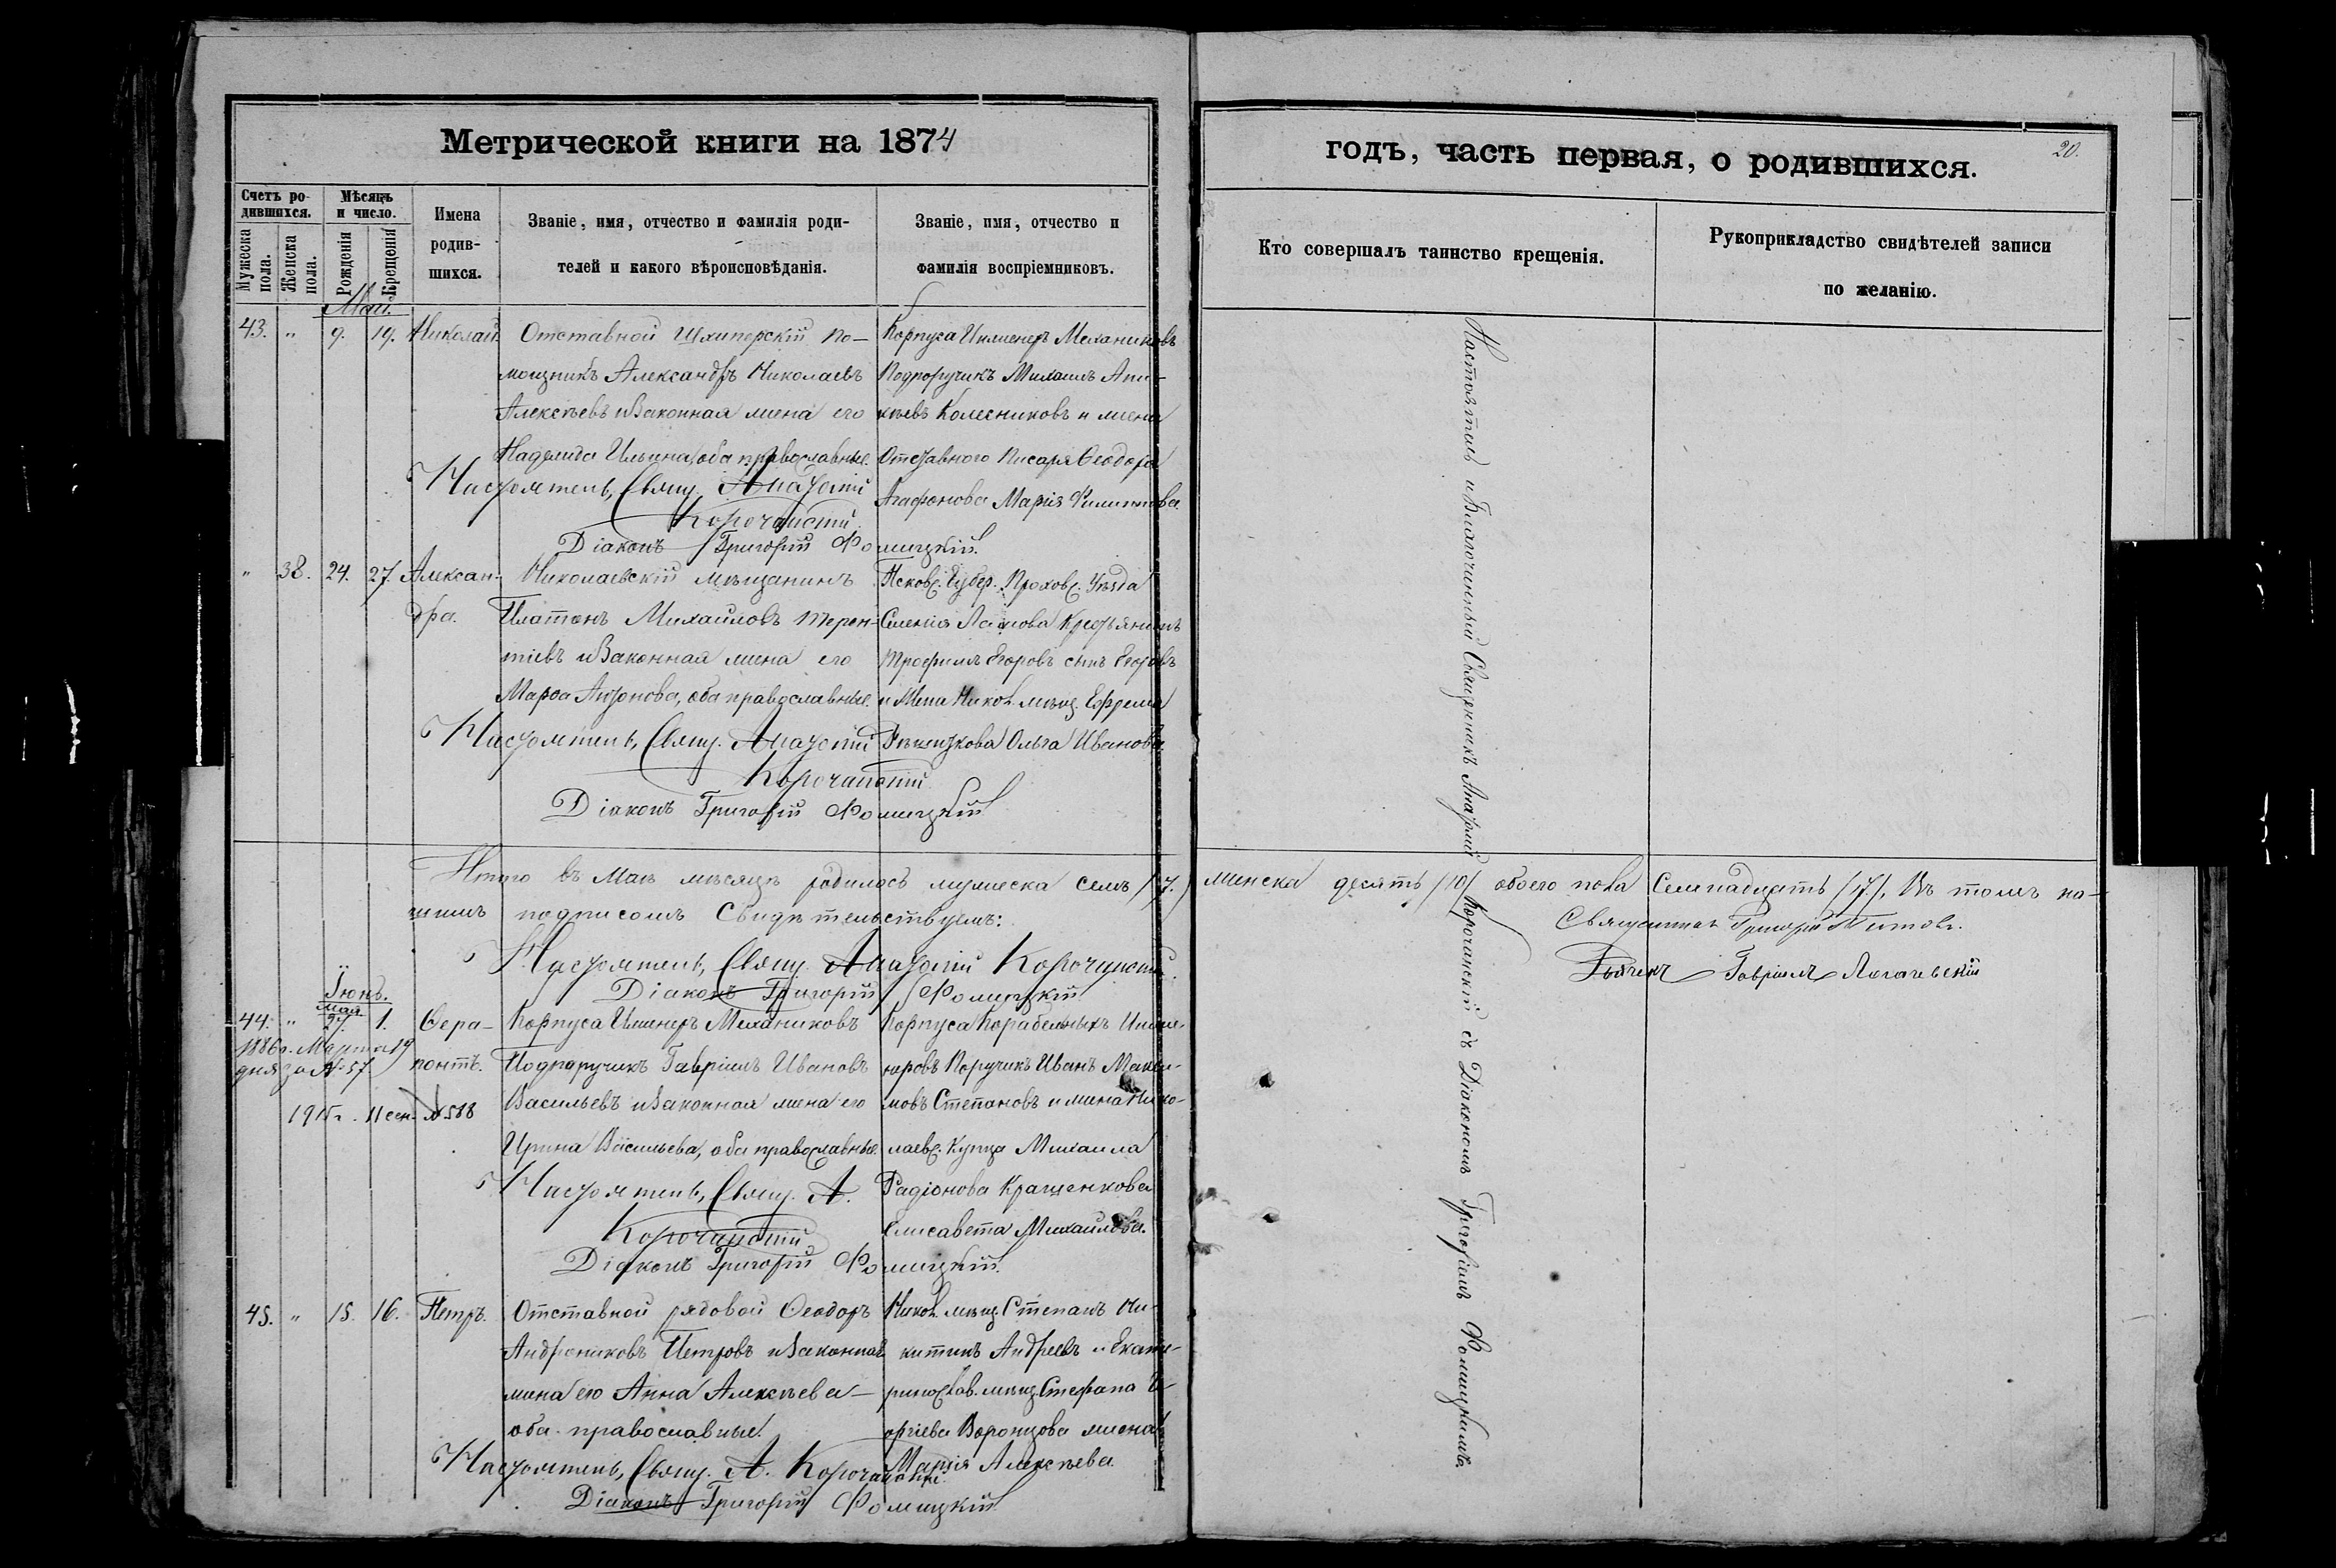 Метрической книги на 1874
Счетъ родившихся.
Мужеска пола.
Женска пола.
Мѣсяцъ и число.
Рожденія
Крещенія
Имена родившихся.
Званіе, имя, отчество и фамилія роди-
телей и какого вѣроисповѣданія.
Званіе, имя, отчество и
фамилія воспріемниковъ.
Май.
43. " 9. 19. Николай.
Отставной Шхиперскій по-
мощникъ Александръ Николаевъ
Алексѣевъ и законная жена его
Надежда Ильина, оба православные.
Корпуса Инженеръ Механиковъ
Подпоручикъ Михаилъ Ани-
кѣевъ Колесниковъ и жена
Отставного Писаря Ѳеодора
Агафонова Марія Филиппова.
Настоятель, Свящ. Анатолій
Корочанскій
Діаконъ Григорій Фомицкій.
" 38. 24. 27. Алексан-
дра.
Николаевскій мѣщанинъ
Платонъ Михаиловъ Терен-
тіевъ и законная жена его
Марѳа Антонова, оба православные.
Псковс. Губер. Уѣзда
Селенія Крестьянинъ
Трофимъ Егоровъ сынъ Егоровъ
и жена Никол. мѣщ. Ефрема
Ольга Иванова.
Настоятель, Свящ. Анатолій
Корочанскій
Діаконъ Григорій Фомицкій
Итого въ Маѣ мѣсяцѣ родилось мужеска семь /7./
шимъ подписомъ свидѣтельствуемъ:
Настоятель, Свящ. Анатолій Корочанскій.
Діаконъ Григорій Фомицкій
Іюнь.
44. " мая 27. 1. Ѳера-
понтъ.
1886 г. Марта 19
дня за № 57
1915 г. 11 сен. № 518
Корпуса Инженеръ Механиковъ
Подпоручикъ Гавріилъ Ивановъ
Васильевъ и законная жена его
Ирина Васильева, оба православные.
Корпуса Корабельныхъ Инже-
неровъ Поручикъ Иванъ Макси-
мовъ Степановъ и жена Нико-
лаевс. Купца Михаила
Радіонова Кращенкова
Елисавета Михаилова.
Настоятель, Свящ. А.
Корочанскій
Діаконъ Григорій Фомицкій.
45. " 15. 16. Петръ.
Отставной рядовой Ѳеодоръ
Андрониковъ Петровъ и законная
жена его Анна Алексѣева —
оба православные.
Никол. мѣщ. Степанъ Ни-
китинъ Андреевъ и Екате-
ринослав. мѣщ. Стефана Ге-
оргіева Воронцова жена
Марія Алексѣева.
Настоятель, Свящ. А. Корочанскій.
Діаконъ Григорій Фомицкій
годъ, часть первая, о родившихся.
20.
Кто совершалъ таинство крещенія.
Рукоприкладство свидѣтелей записи
по желанію.
Настоятель и Благочинный Священникъ Анатолій Корочанскій съ Діакономъ Григоріемъ Фомицкимъ.
женска десять /10/ обоего пола Семнадцать /17/. Въ томъ на-
Священникъ Григорій
Гавріилъ